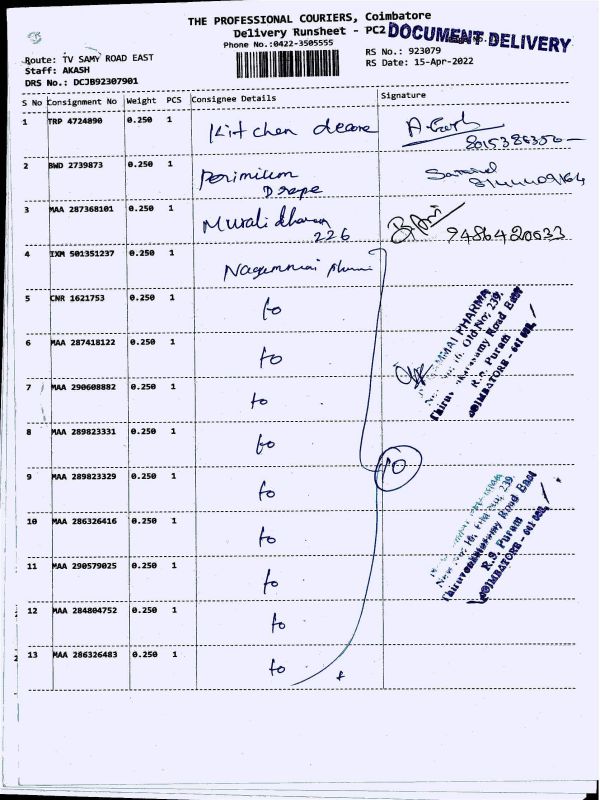 THE PROFESSIONAL COURIERS, Coimbatore
Delivery Runsheet - PC2
DOCUMENT DELIVERY
Phone No.:0422-3505555
Route: TV SAMY ROAD EAST
RS No.: 923079
Staff: AKASH
RS Date: 15-Apr-2022
DRS No.: DCJB92307901
S No Consignment No Weight PCS Consignee Details Signature
1 TRP 4724890 0.250 1 Kitchen decore
2 BWD 2739873 0.250 1 Perimium
Drape
3 MAA 287368101 0.250 1 Murali dharan
226 9486420633
4 IXM 501351237 0.250 1 Nagammai pharma
5 CNR 1621753 0.250 1 to
6 MAA 287418122 0.250 1 to
7 MAA 290608882 0.250 1 to
8 MAA 289823331 0.250 1 to
9 MAA 289823329 0.250 1 to
10 MAA 286326416 0.250 1 to
11 MAA 290579025 0.250 1 to
12 MAA 284804752 0.250 1 to
13 MAA 286326483 0.250 1 to
10
PHARMA
Old No. 239,
Road East
R.S. Puram
COIMBATORE - 641 002.
Old No. 239,
Thiruvenkatasamy Road East
R.S. Puram
COIMBATORE - 641 002.